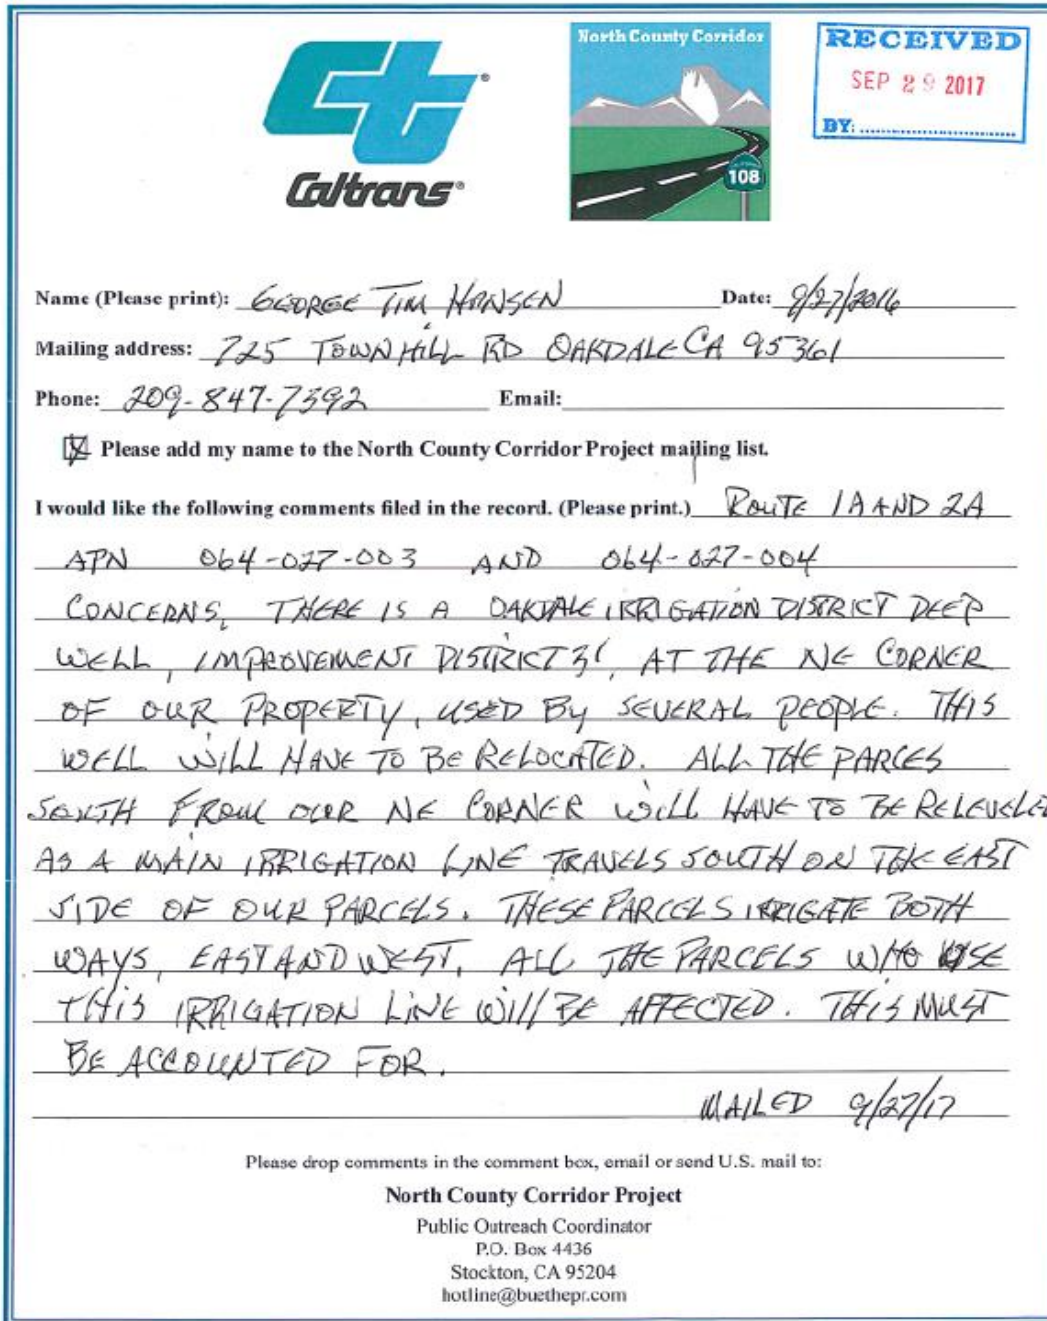 Caltrans®
North County Corridor
CALIFORNIA
108
RECEIVED
SEP 29 2017
BY:
Name (Please print): GEORGE TIM HANSEN Date: 9/27/2016
Mailing address: 725 TOWNHILL RD OAKDALE CA 95361
Phone: 209-847-7392 Email:
Please add my name to the North County Corridor Project mailing list.
I would like the following comments filed in the record. (Please print.) ROUTE 1A AND 2A
APN 064-027-003 AND 064-027-004
CONCERNS, THERE IS A OAKDALE IRRIGATION DISTRICT DEEP
WELL, IMPROVEMENT DISTRICT 31, AT THE NE CORNER
OF OUR PROPERTY, USED BY SEVERAL PEOPLE. THIS
WELL WILL HAVE TO BE RELOCATED. ALL THE PARCES
SOUTH FROM OUR NE CORNER WILL HAVE TO BE RELEVELED
AS A MAIN IRRIGATION LINE TRAVELS SOUTH ON THE EAST
SIDE OF OUR PARCELS. THESE PARCELS IRRIGATE BOTH
WAYS, EAST AND WEST. ALL THE PARCELS WHO USE
THIS IRRIGATION LINE WILL BE AFFECTED. THIS MUST
BE ACCOUNTED FOR.
MAILED 9/27/17
Please drop comments in the comment box, email or send U.S. mail to:
North County Corridor Project
Public Outreach Coordinator
P.O. Box 4436
Stockton, CA 95204
hotline@buethepr.com